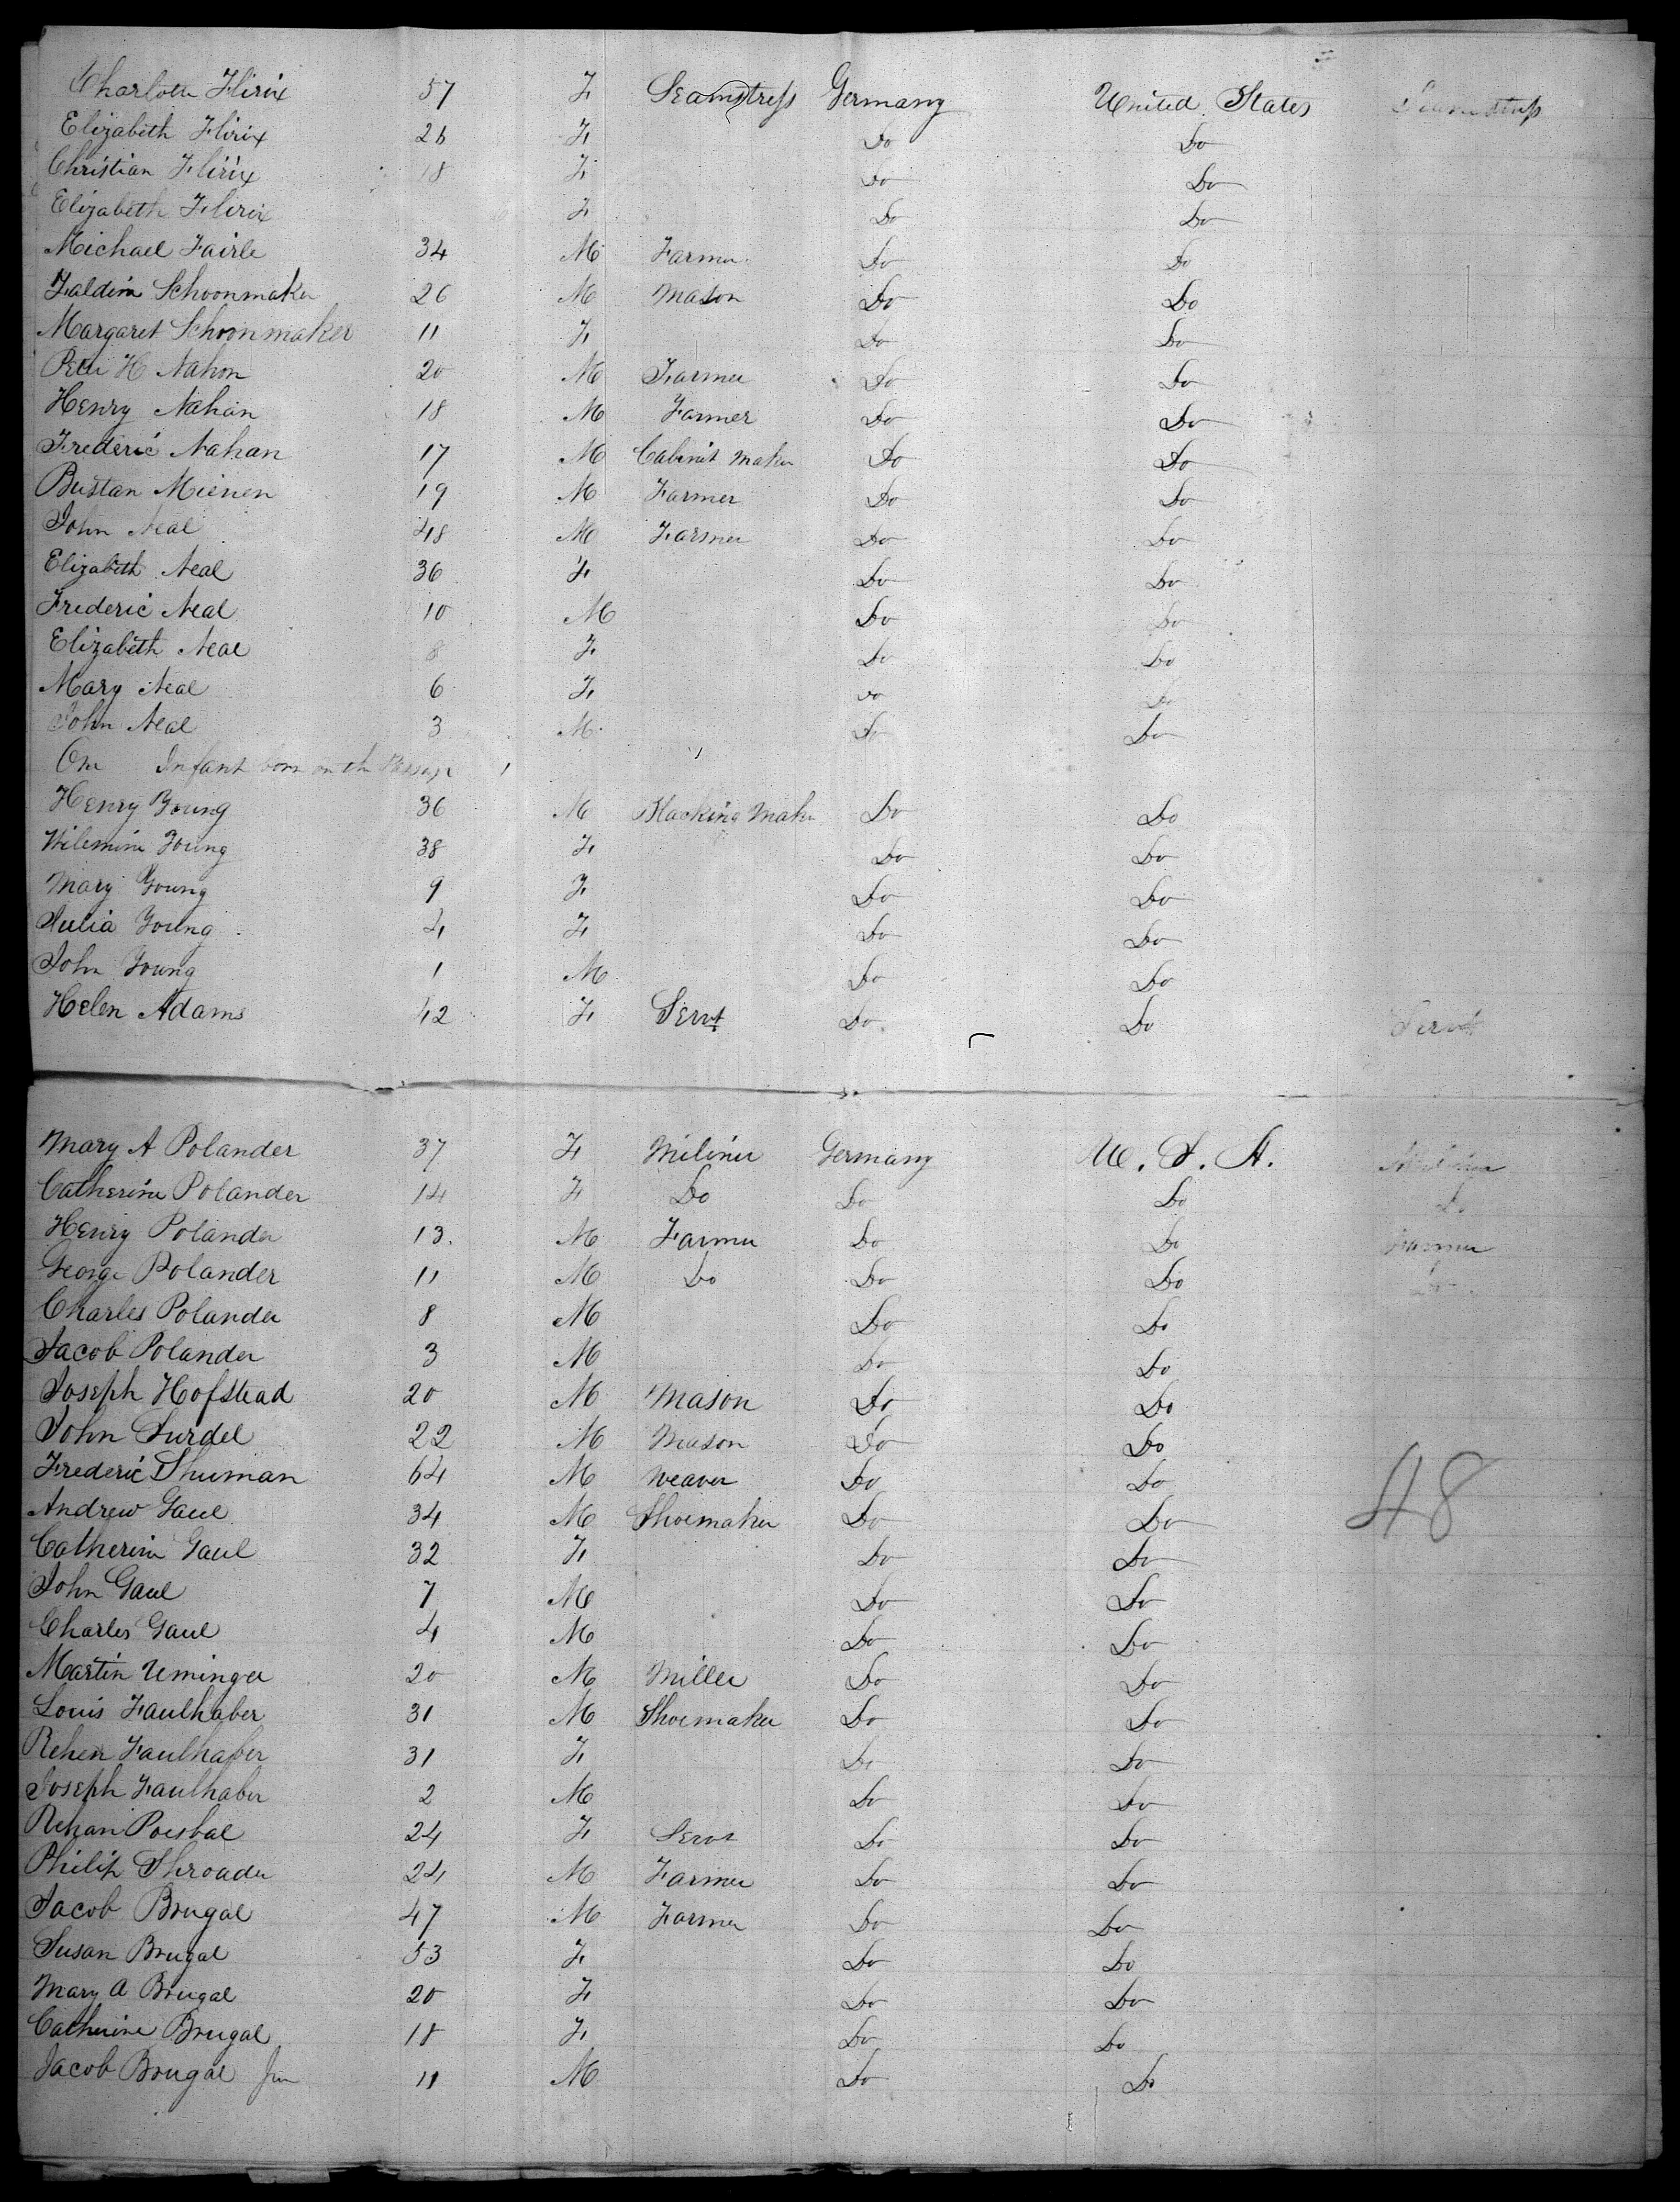 Charlotte Flirix 57 F Seamstress Germany United States Seamstress
Elizabeth Flirix 26 F Do Do
Christian Flirix 18 F Do Do
Elizabeth Flirix F Do Do
Michael Fairle 34 M Farmer Do Do
Faldin Schoonmaker 26 M Mason Do Do
Margaret Schoonmaker 11 F Do Do
Peter H Nahon 20 M Farmer Do Do
Henry Nahan 18 M Farmer Do Do
Frederic Nahan 17 M Cabinet Maker Do Do
Bustan Mienen 19 M Farmer Do Do
John Neal 48 M Farmer Do Do
Elizabeth Neal 36 F Do Do
Frederic Neal 10 M Do Do
Elizabeth Neal 8 F Do Do
Mary Neal 6 F Do Do
John Neal 3 M Do Do
One Infant born on the Passage 1
Henry Young 36 M Blacking Maker Do Do
Wilemine Young 38 F Do Do
Mary Young 9 F Do Do
Julia Young 4 F Do Do
John Young 1 M Do Do
Helen Adams 42 F Servt Do Do Servt
Mary A Polander 37 F Miliner Germany U. S. A.
Catherine Polander 14 F Do Do Do Do
Henry Polander 13 M Farmer Do Do Farmer
George Polander 11 M Do Do Do Do
Charles Polander 8 M Do Do
Jacob Polander 3 M Do Do
Joseph Hofstead 20 M Mason Do Do
John Surdel 22 M Mason Do Do
Frederic Shuman 64 M Weaver Do Do
48
Andrew Gaul 34 M Shoemaker Do Do
Catherine Gaul 32 F Do Do
John Gaul 7 M Do Do
Charles Gaul 4 M Do Do
Martin Uminger 20 M Miller Do Do
Louis Faulhaber 31 M Shoemaker Do Do
Rehen Faulhaber 31 F Do Do
Joseph Faulhaber 2 M Do Do
Rehan Poesbal 24 F Servt Do Do
Philip Shroader 24 M Farmer Do Do
Jacob Brugal 47 M Farmer Do Do
Susan Brugal 53 F Do Do
Mary A Brugal 20 F Do Do
Catherine Brugal 18 F Do Do
Jacob Brugal Jun 11 M Do Do